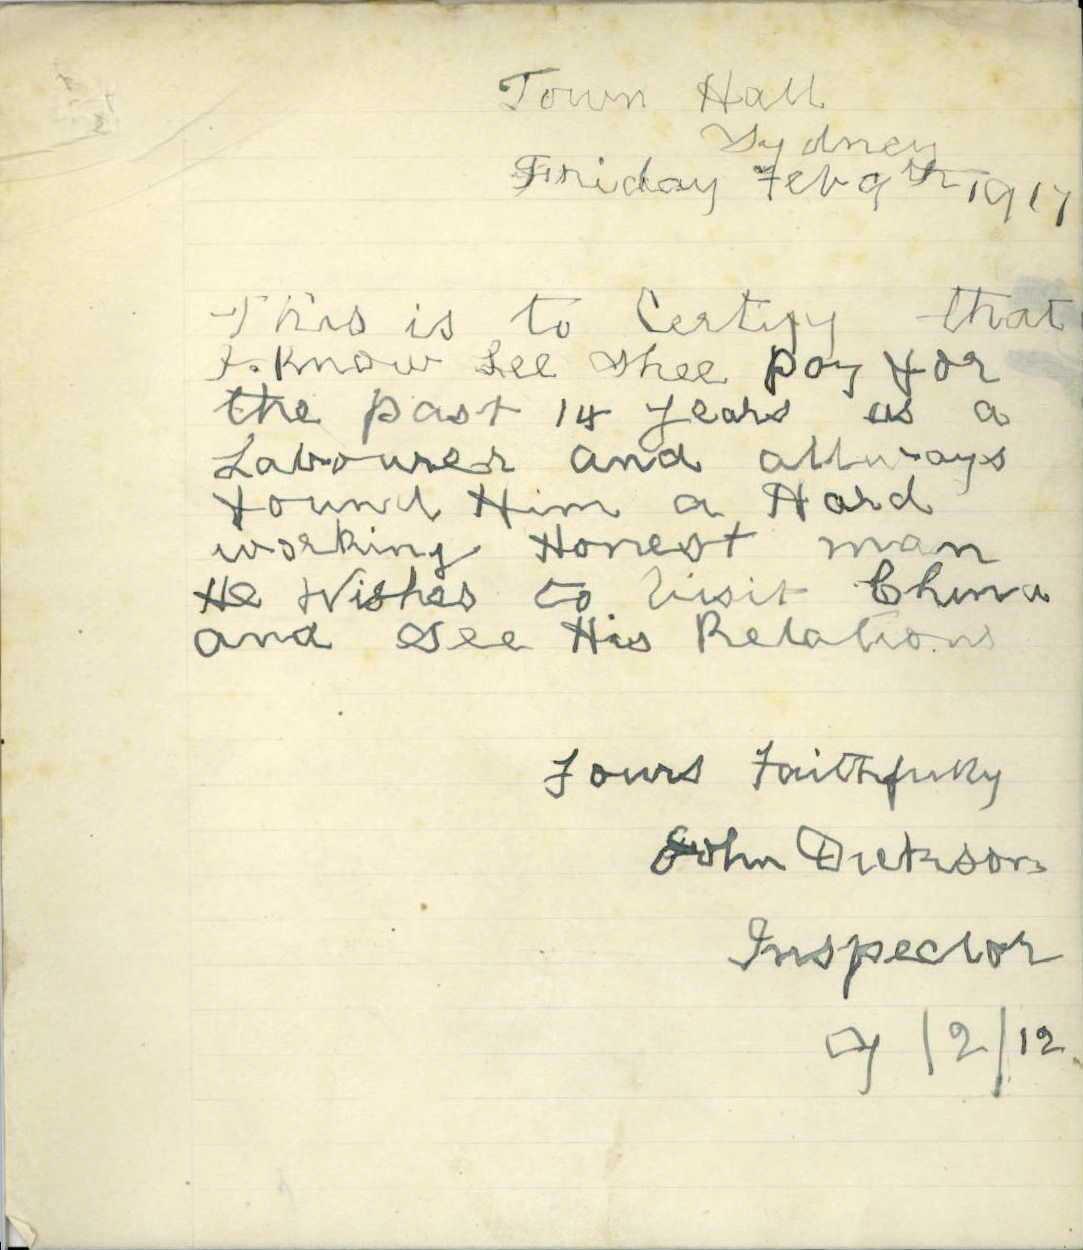 Town Hall
Sydney
Friday Feb 9th 1917
This is to Certify that
I. Know See Shee Poy for
the past 14 years as a
Labourer and allways
found Him a Hard
working Honest man
He Wishes to Visit China
and See His Relations
Yours Faithfully
John Dickson
Inspector
9/2/12